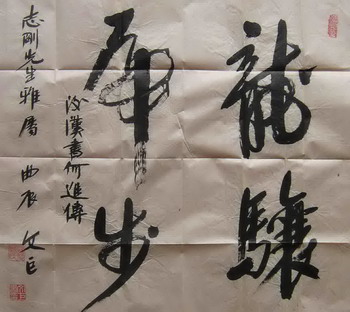 龍驤
虎步
後漢書何進傳
志剛先生雅屬 曲辰